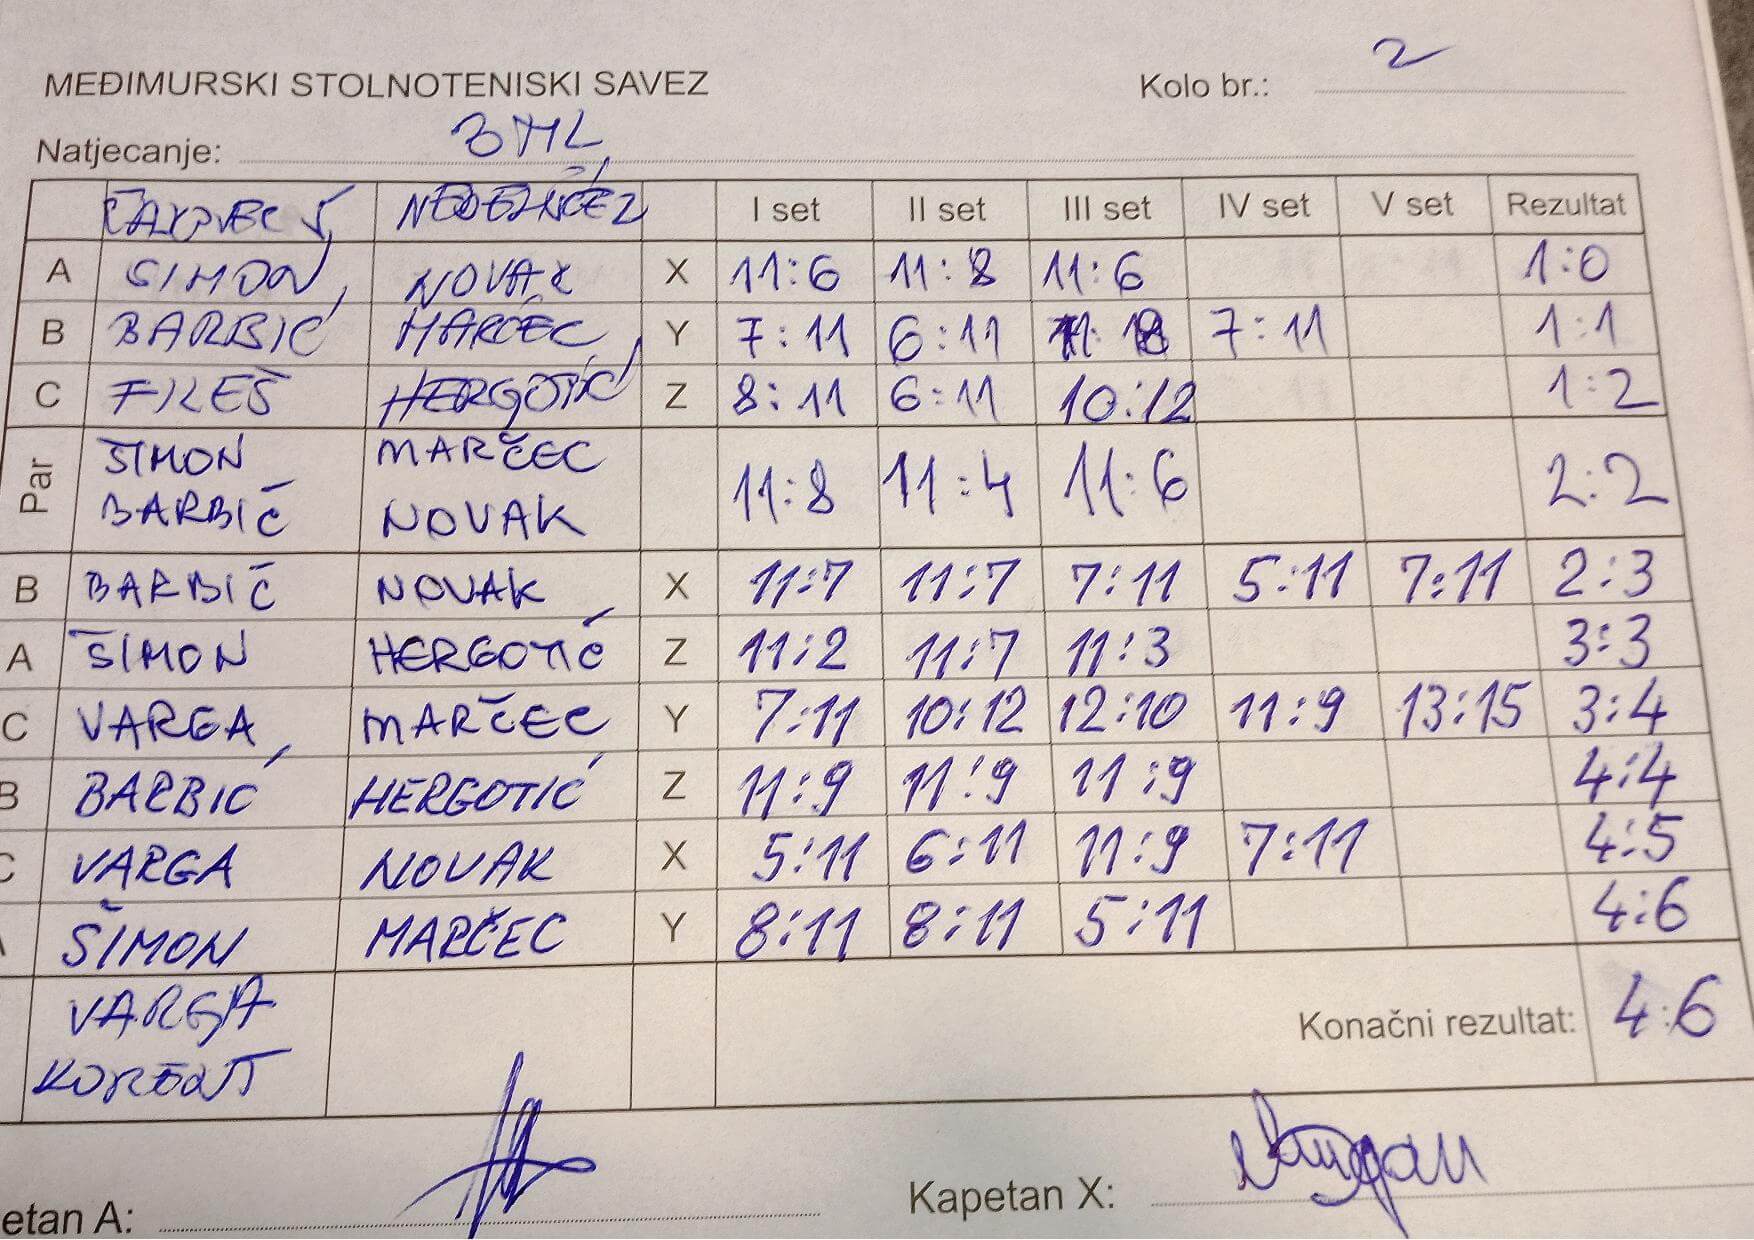 MEĐIMURSKI STOLNOTENISKI SAVEZ Kolo br.: 2
Natjecanje: 3 ML
ČAKOVEC NEDELIŠĆE I set II set III set IV set V set Rezultat
A ŠIMON NOVAK X 11:6 11:8 11:6 1:0
B BARBIĆ MARČEC Y 7:11 6:11 11:8 7:11 1:1
C FILEŠ HERGOTIĆ Z 8:11 6:11 10:12 1:2
Par
ŠIMON MARČEC 11:8 11:4 11:6 2:2
BARBIĆ NOVAK
B BARBIĆ NOVAK X 11:7 11:7 7:11 5:11 7:11 2:3
A ŠIMON HERGOTIĆ Z 11:2 11:7 11:3 3:3
C VARGA MARČEC Y 7:11 10:12 12:10 11:9 13:15 3:4
B BARBIĆ HERGOTIĆ Z 11:9 11:9 11:9 4:4
C VARGA NOVAK X 5:11 6:11 11:9 7:11 4:5
ŠIMON MARČEC Y 8:11 8:11 5:11 4:6
VARGA Konačni rezultat: 4:6
etan A: Kapetan X: